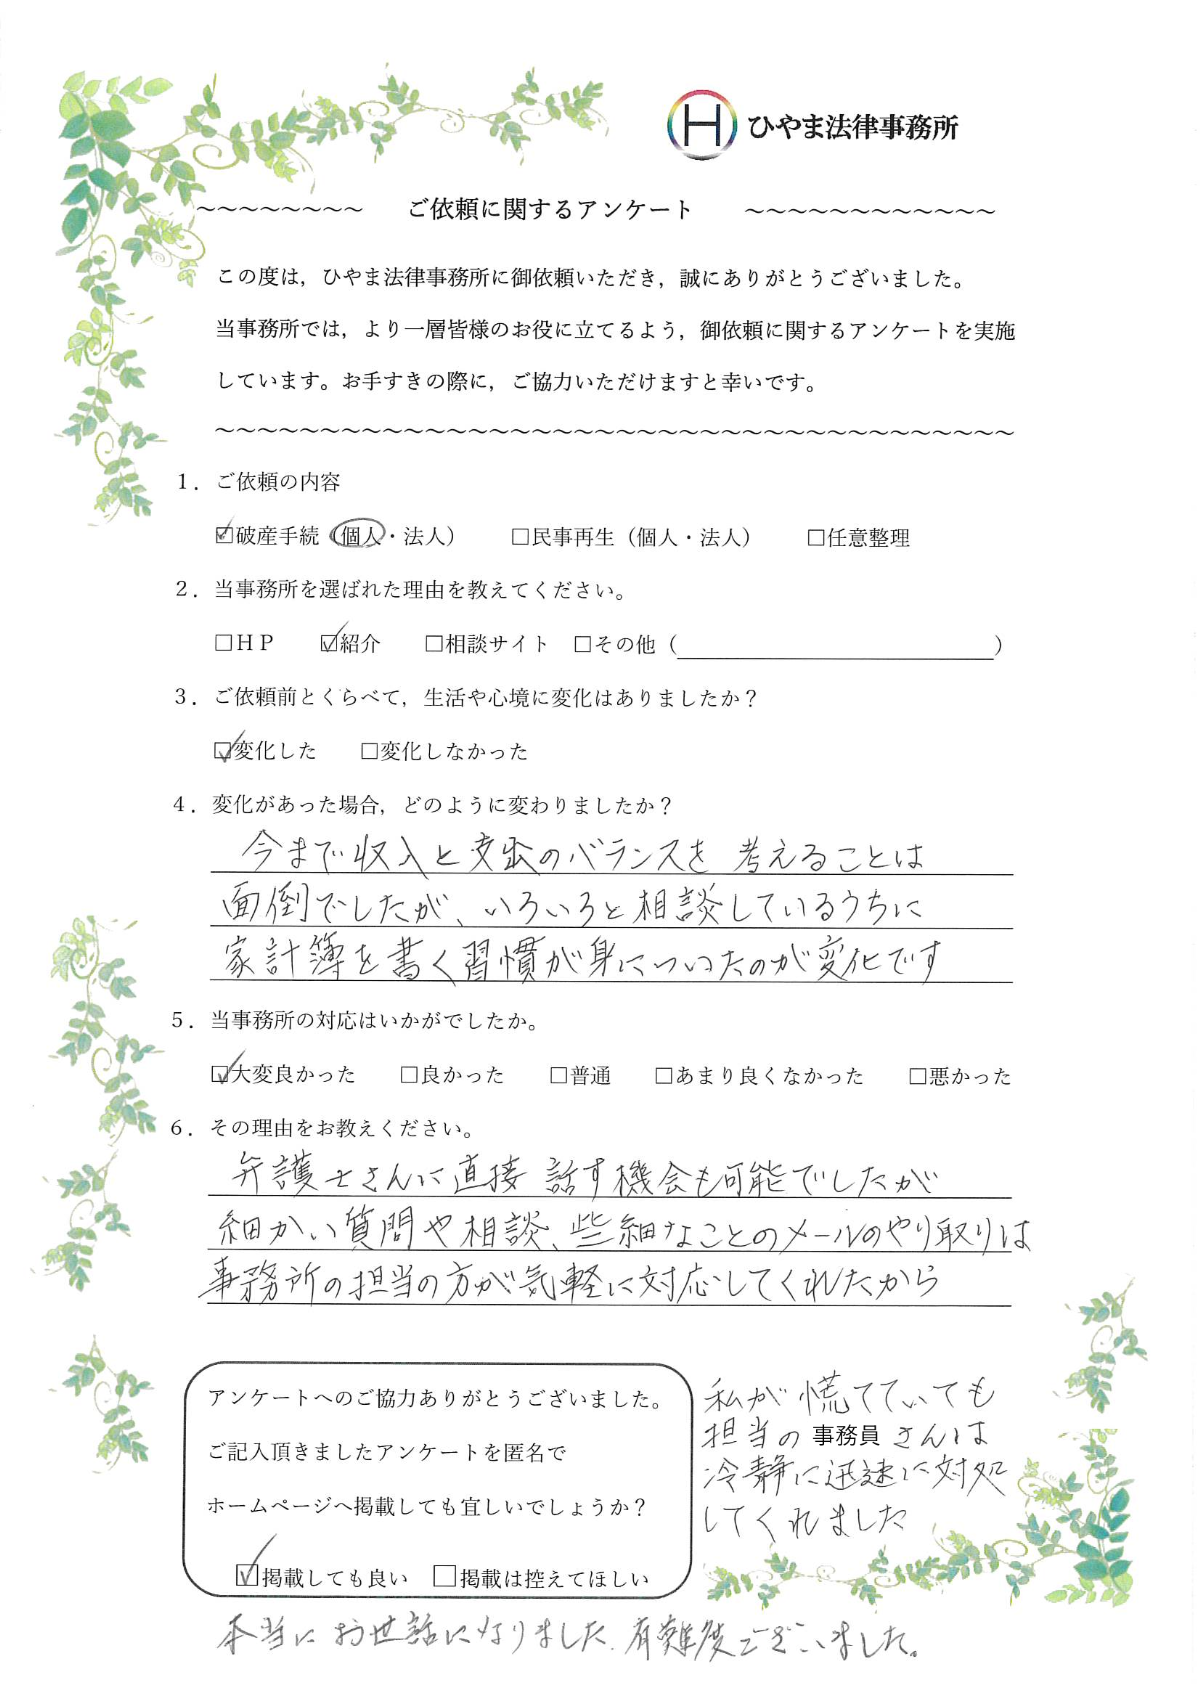 H ひやま法律事務所
~~~~~~~~ ご依頼に関するアンケート ~~~~~~~~~~~~
この度は，ひやま法律事務所に御依頼いただき，誠にありがとうございました。
当事務所では，より一層皆様のお役に立てるよう，御依頼に関するアンケートを実施
しています。お手すきの際に，ご協力いただけますと幸いです。
~~~~~~~~~~~~~~~~~~~~~~~~~~~~~~~~~~~~~~
１．ご依頼の内容
☑破産手続（個人・法人） □民事再生（個人・法人） □任意整理
２．当事務所を選ばれた理由を教えてください。
□ＨＰ ☑紹介 □相談サイト □その他（ ）
３．ご依頼前とくらべて，生活や心境に変化はありましたか？
☑変化した □変化しなかった
４．変化があった場合，どのように変わりましたか？
今まで収入と支出のバランスを 考えることは
面倒でしたが、いろいろと相談しているうちに
家計簿を書く習慣が身についたのが変化です
５．当事務所の対応はいかがでしたか。
☑大変良かった □良かった □普通 □あまり良くなかった □悪かった
６．その理由をお教えください。
弁護士さんに直接 話す機会も可能でしたが
細かい質問や相談、些細なことのメールのやり取りは
事務所の担当の方が気軽に対応してくれたから
アンケートへのご協力ありがとうございました。
ご記入頂きましたアンケートを匿名で
ホームページへ掲載しても宜しいでしょうか？
☑掲載しても良い □掲載は控えてほしい
私が慌てていても
担当の 事務員 さんは
冷静に迅速に対処
してくれました
本当にお世話になりました。有難度ございました。